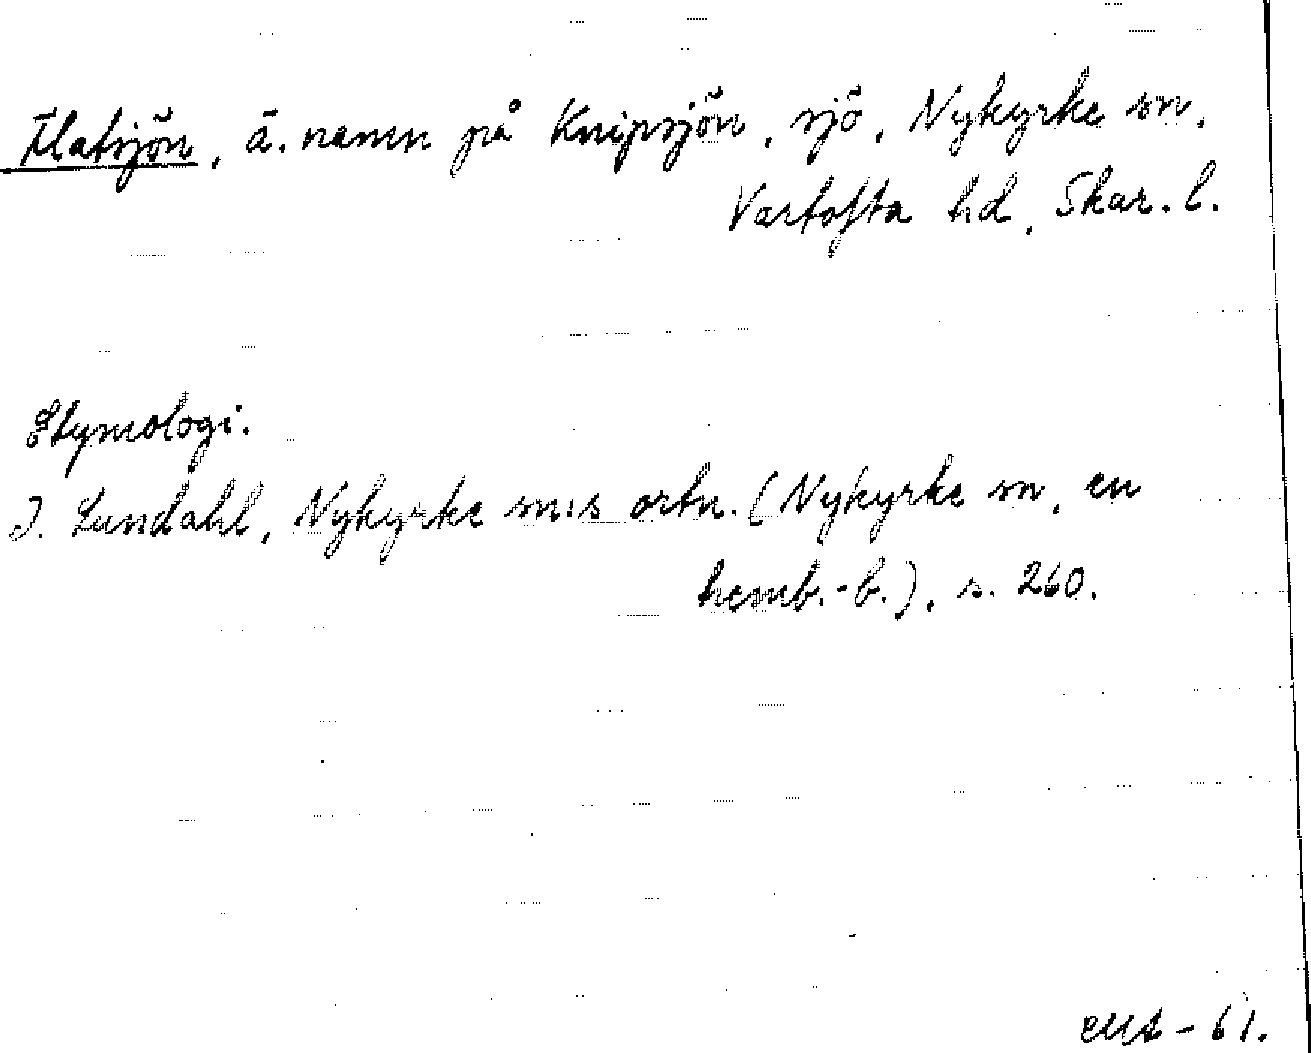 Flatsjön, ä. namn på Knipsjön, sjö, Nykyrke sn,
Vartofta hd, Skar. l.
Etymologi.
I. Lundahl, Nykyrke sn:s ortn. (Nykyrke sn, en
hemb.-b.), s. 260.
-61.